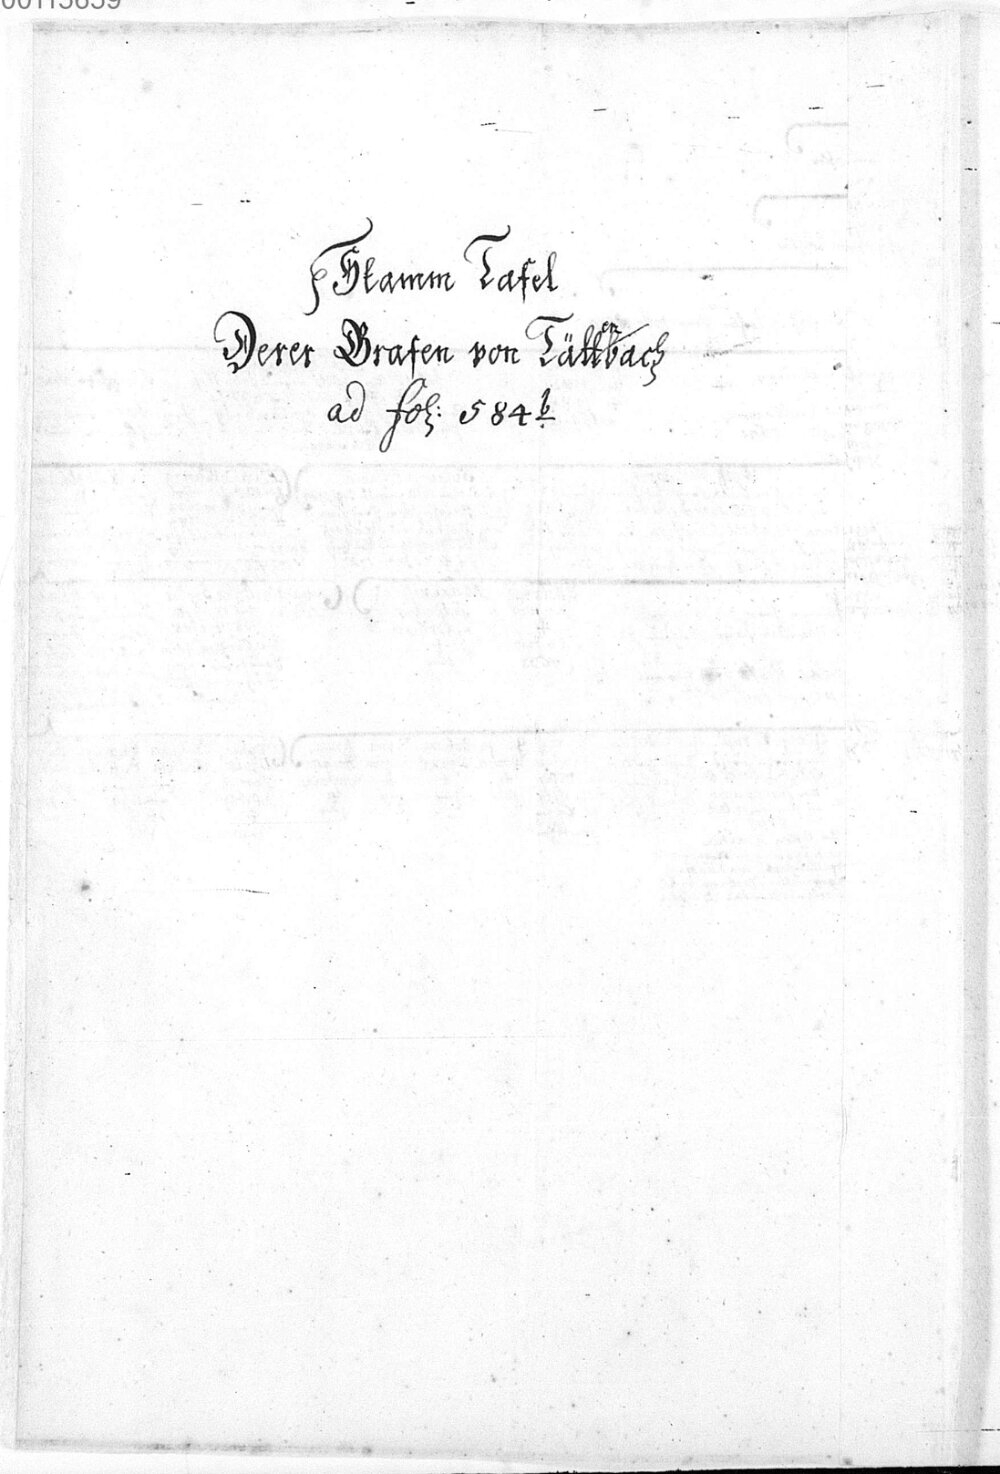 00113659
Stamm Tafel
Derer Grafen von Tättenbach
ad fol: 584 b